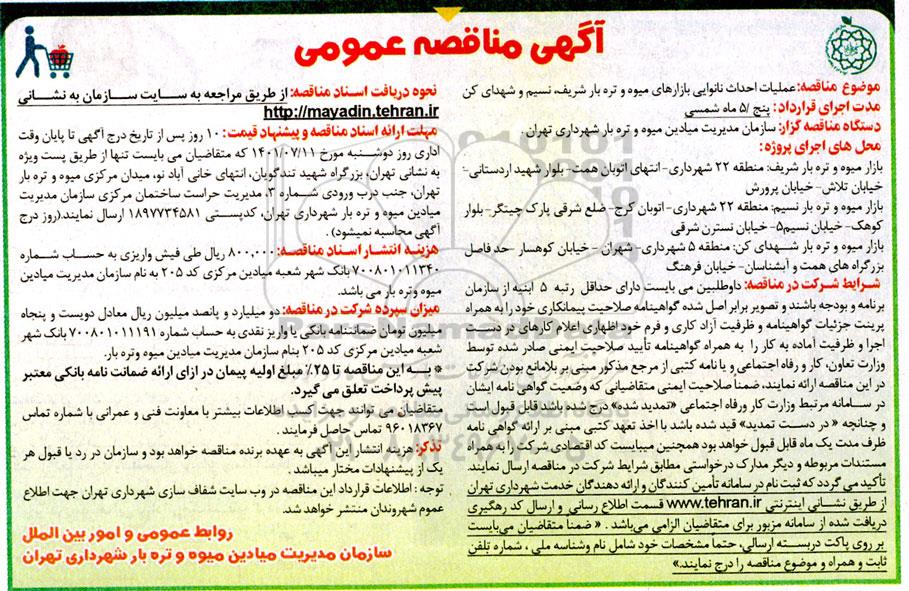 آگهی مناقصه عمومی
موضوع مناقصه: عملیات احداث نانوایی بازارهای میوه و تره بار شریف، نسیم و شهدای کن
مدت اجرای قرارداد: پنج /۵ ماه شمسی
دستگاه مناقصه گزار: سازمان مدیریت میادین میوه و تره بار شهرداری تهران.
محل های اجرای پروژه:
بازار میوه و تره بار شریف: منطقه ۲۲ شهرداری- انتهای اتوبان همت- بلوار شهید اردستانی-
خیابان تلاش- خیابان پرورش
بازار میوه و تره بار نسیم: منطقه ۲۲ شهرداری-اتوبان کرج- ضلع شرقی پارک چیتگر- بلوار
کوهک- خیابان نسیم۵- خیابان نسترن شرقی
بازار میوه و تره بار شهدای کن: منطقه ۵ شهرداری- شهران - خیابان کوهسار -حد فاصل
بزرگراه های همت و آبشناسان- خیابان فرهنگ
شرایط شرکت در مناقصه: داوطلبین می بایست دارای حداقل رتبه ۵ ابنیه از سازمان
برنامه و بودجه باشند و تصویر برابر اصل شده گواهینامه صلاحیت پیمانکاری خود را به همراه
پرینت جزئیات گواهینامه و ظرفیت آزاد کاری و فرم خود اظهاری اعلام کارهای در دست
اجرا و ظرفیت آماده به کار را به همراه گواهینامه تأیید صلاحیت ایمنی صادر شده توسط
وزارت تعاون، کار و رفاه اجتماعی و یا نامه کتبی از مرجع مذکور مبنی بر بلامانع بودن شرکت
در این مناقصه ارائه نمایند، ضمناً صلاحیت ایمنی متقاضیانی که وضعیت گواهی نامه ایشان
در سامانه مرتبط وزارت کار ورفاه اجتماعی «تمدید شد» درج شده باشد قابل قبول است
و چنانچه « در دست تمدید» قید شده باشد با اخذ تعهد کتبی مبنی بر ارائه گواهی نامه
ظرف مدت یک ماه قابل قبول خواهد بود همچنین میبایست کد اقتصادی شرکت را به همراه
مستندات مربوطه و دیگر مدارک درخواستی مطابق شرایط شرکت در مناقصه ارسال نمایند.
تأکید می گردد که ثبت نام در سامانه تأمین کنندگان و ارائه دهندگان خدمت شهرداری تهران
از طریق نشانی اینترنتی www.tehran.ir قسمت اطلاع رسانی و ارسال کد رهگیری
دریافت شده از سامانه مزبور برای متقاضیان الزامی می‌باشد. « ضمناً متقاضیان می‌بایست
بر روی پاکت دربسته ارسالی، حتماً مشخصات خود شامل نام وشناسه ملی ، شماره تلفن
ثابت و همراه و موضوع مناقصه را درج نمایند.»
نحوه دریافت اسناد مناقصه: از طریق مراجعه به سایت سازمان به نشانی
http://mayadin.tehran.ir
مهلت ارائه اسناد مناقصه و پیشنهاد قیمت: ۱۰ روز پس از تاریخ درج آگهی تا پایان وقت
اداری روز دوشنبه مورخ ۱۴۰۱/۰۷/۱۱ که متقاضیان می بایست تنها از طریق پست ویژه
به نشانی تهران، بزرگراه شهید تندگویان، انتهای خانی آباد نو، میدان مرکزی میوه و تره بار
تهران، جنب درب ورودی شماره ۳، مدیریت حراست ساختمان مرکزی سازمان مدیریت
میادین میوه و تره بار شهرداری تهران، کدپستی ۱۸۹۷۷۳۴۵۸۱ ارسال نمایند.(روز درج
آگهی محاسبه نمیشود).
هزینه انتشار اسناد مناقصه: ۸۰۰,۰۰۰ ریال طی فیش واریزی به حساب شماره
۷۰۰۸۰۱۰۱۱۳۴۰ بانک شهر شعبه میادین مرکزی کد ۲۰۵ به نام سازمان مدیریت میادین
میوه وتره بار می باشد.
میزان سپرده شرکت در مناقصه: دو میلیارد و پانصد میلیون ریال معادل دویست و پنجاه
میلیون تومان ضمانتنامه بانکی یا واریز نقدی به حساب شماره ۷۰۰۸۰۱۰۱۱۱۹۱ بانک شهر
شعبه میادین مرکزی کد ۲۰۵ بنام سازمان مدیریت میادین میوه وتره بار.
* به این مناقصه تا ۲۵٪ مبلغ اولیه پیمان در ازای ارائه ضمانت نامه بانکی معتبر
پیش پرداخت تعلق می گیرد.
متقاضیان می توانند جهت کسب اطلاعات بیشتر با معاونت فنی و عمرانی با شماره تماس
۹۶۰۱۸۳۶۷ تماس حاصل فرمایند.
تذکر: هزینه انتشار این آگهی به عهده برنده مناقصه خواهد بود و سازمان در رد یا قبول هر
یک از پیشنهادات مختار میباشد.
توجه : اطلاعات قرارداد این مناقصه در وب سایت شفاف سازی شهرداری تهران جهت اطلاع
عموم شهروندان منتشر خواهد شد.
روابط عمومی و امور بین الملل
سازمان مدیریت میادین میوه و تره بار شهرداری تهران